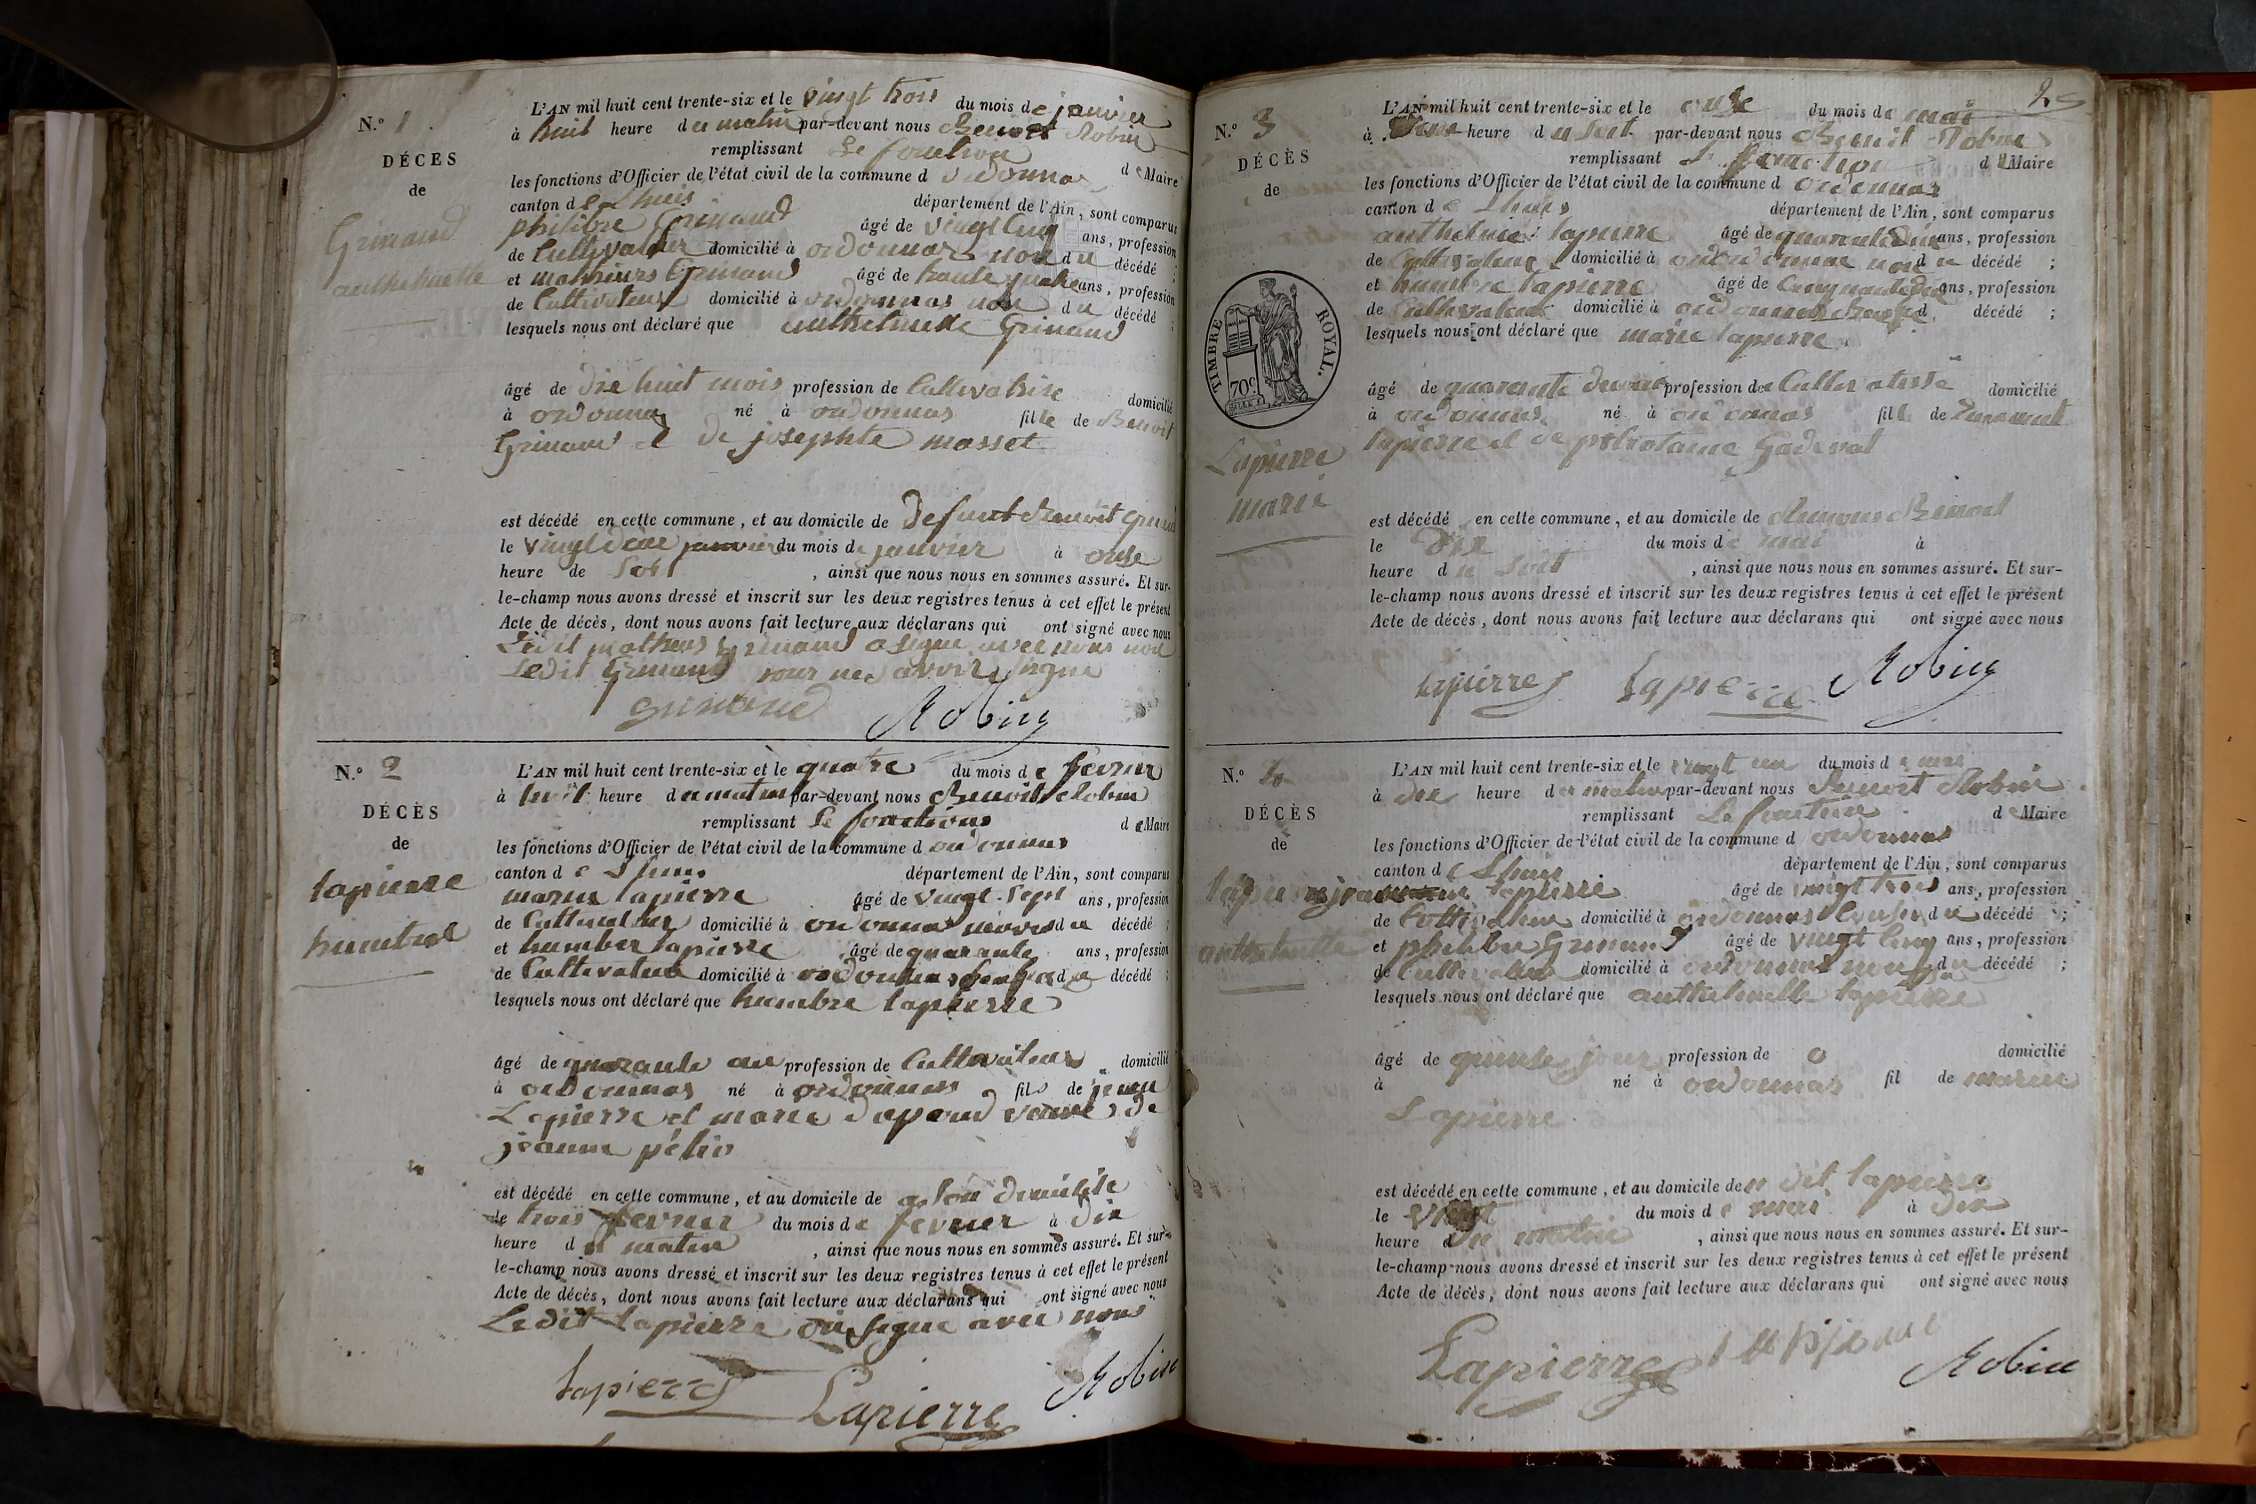 N.º 1
DÉCES
de
Grinand
anthelmette
L'AN mil huit cent trente-six et le vingt trois du mois de janvier
à huit heure du matin par-devant nous Benoit Robin
remplissant Le fonction de Maire
les fonctions d'Officier de l'état civil de la commune d ordonnas
canton de Lhuis département de l'Ain, sont comparus
philibre Grinand âgé de vingt cinq ans, profession
de Cultivateur domicilié à ordonnas non du décédé ;
et mathieurs Grinand âgé de trante quatre ans, profession
de Cultivateur domicilié à ordonnas non du décédé ;
lesquels nous ont déclaré que anthelmette Grinand
âgé de dix huit mois profession de Cultivatrise domicilié
à ordonnas né à ordonnas fille de Benoit
Grinand et de josephte masset
est décédé en cette commune, et au domicile de defunt Benoit Grinand
le vingt deux janvier du mois de janvier à onse
heure de soir, ainsi que nous nous en sommes assuré. Et sur-
le-champ nous avons dressé et inscrit sur les deux registres tenus à cet effet le présent
Acte de décès, dont nous avons fait lecture aux déclarans qui ont signé avec nous
Ledit mathieus Grinand a signe avec nous non
Ledit Grinand pour ne savoir signe
grinand Robin
N.º 2
DÉCÈS
de
lapierre
humbre
L'AN mil huit cent trente-six et le quatre du mois de fevrier
à huit heure du matin par-devant nous Benoit Robin
remplissant Le fonctions de Maire
les fonctions d'Officier de l'état civil de la commune d ordonnas
canton de Lhuis département de l'Ain, sont comparus
marin lapierre âgé de vingt-sept ans, profession
de Cultivateur domicilié à ordonnas du décédé ;
et humber lapierre âgé de quarante ans, profession
de Cultivateur domicilié à ordonnas du décédé ;
lesquels nous ont déclaré que humbre lapierre
âgé de quarante an profession de Cultivateur domicilié
à ordonnas né à ordonnas fils de jean
Lapierre et marie dapand de
jeanne pélio
est décédé en cette commune, et au domicile de a son domicile
le trois fevrier du mois de fevrier à dix
heure du matin, ainsi que nous nous en sommes assuré. Et sur-
le-champ nous avons dressé et inscrit sur les deux registres tenus à cet effet le présent
Acte de décès, dont nous avons fait lecture aux déclarans qui ont signé avec nous
Ledit lapierre on signe avec nous
lapierre Lapierre Robin
25
N.º 3
DÉCÈS
de
TIMBRE ROYAL.
70c
Lapierre
marie
L'AN mil huit cent trente-six et le onse du mois de mai
à heure du soit par-devant nous Benoit Robin
remplissant fonction de Maire
les fonctions d'Officier de l'état civil de la commune d ordonnas
canton de Lhuis département de l'Ain, sont comparus
anthelme lapierre âgé de quarante deux ans, profession
de Cultivateur domicilié à ordonnas non du décédé ;
et humbre lapierre âgé de cinquante deux ans, profession
de Cultivateur domicilié à ordonnas d décédé ;
lesquels nous ont déclaré que marie lapierre
âgé de quarante deux an profession de Cultivatrise domicilié
à ordonnas né à ordonnas fille de
lapierre et de Gaderat
est décédé en cette commune, et au domicile de Benoit
le dix du mois de mai à
heure du soit, ainsi que nous nous en sommes assuré. Et sur-
le-champ nous avons dressé et inscrit sur les deux registres tenus à cet effet le présent
Acte de décès, dont nous avons fait lecture aux déclarans qui ont signé avec nous
lapierre Lapierre Robin
N.º 4
DÉCÈS
de
lapierre
anthelmette
L'AN mil huit cent trente-six et le vingt un du mois de mai
à dix heure du matin par-devant nous Benoit Robin
remplissant Le fonction de Maire
les fonctions d'Officier de l'état civil de la commune d ordonnas
canton de Lhuis département de l'Ain, sont comparus
lapierre âgé de vingt trois ans, profession
de Cultivateur domicilié à ordonnas du décédé ;
et philibre Grinand âgé de vingt cinq ans, profession
de Cultivateur domicilié à ordonnas non du décédé ;
lesquels nous ont déclaré que anthelmette lapierre
âgé de quinse jour profession de 0 domicilié
à né à ordonnas fil de marin
Lapierre
est décédé en cette commune, et au domicile de dit lapierre
le vingt du mois de mai à dix
heure du matin, ainsi que nous nous en sommes assuré. Et sur-
le-champ nous avons dressé et inscrit sur les deux registres tenus à cet effet le présent
Acte de décès, dont nous avons fait lecture aux déclarans qui ont signé avec nous
Lapierre Robin